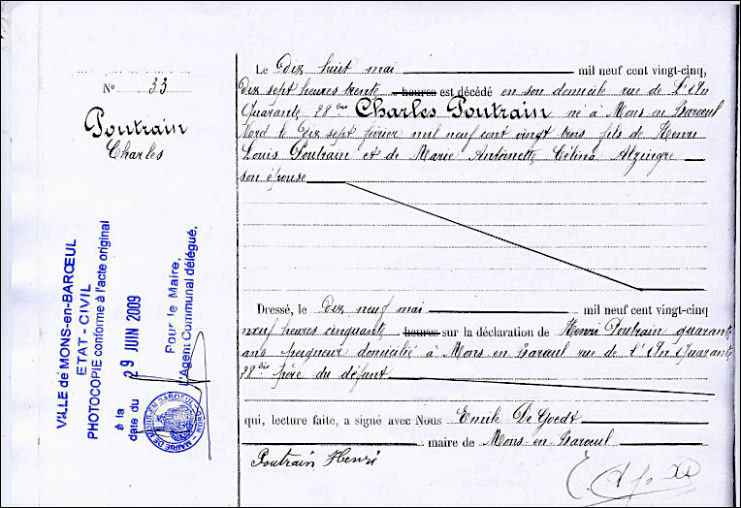 N° 33
Poutrain
Charles
VILLE de MONS-en-BARŒUL
ETAT - CIVIL
PHOTOCOPIE conforme à l'acte original
à la
date du 29 JUIN 2009
Pour le Maire,
L'Agent Communal délégué,
Le Dix huit mai mil neuf cent vingt-cinq,
Dix sept heures trente heures est décédé en son domicile rue de l'An
Quarante 28 bis Charles Poutrain né à Mons en Barœul
Nord le Dix sept février mil neuf cent vingt trois fils de Henri
Louis Poutrain et de Marie Antoinette Célina
son épouse
Dressé, le Dix neuf mai mil neuf cent vingt-cinq
neuf heures cinquante heures sur la déclaration de Henri Poutrain quarante
ans peigneur domicilié à Mons en Barœul rue de l'An Quarante
28 bis père du défunt
qui, lecture faite, a signé avec Nous Emile De Goedt
maire de Mons-en-Barœul
Poutrain Henri